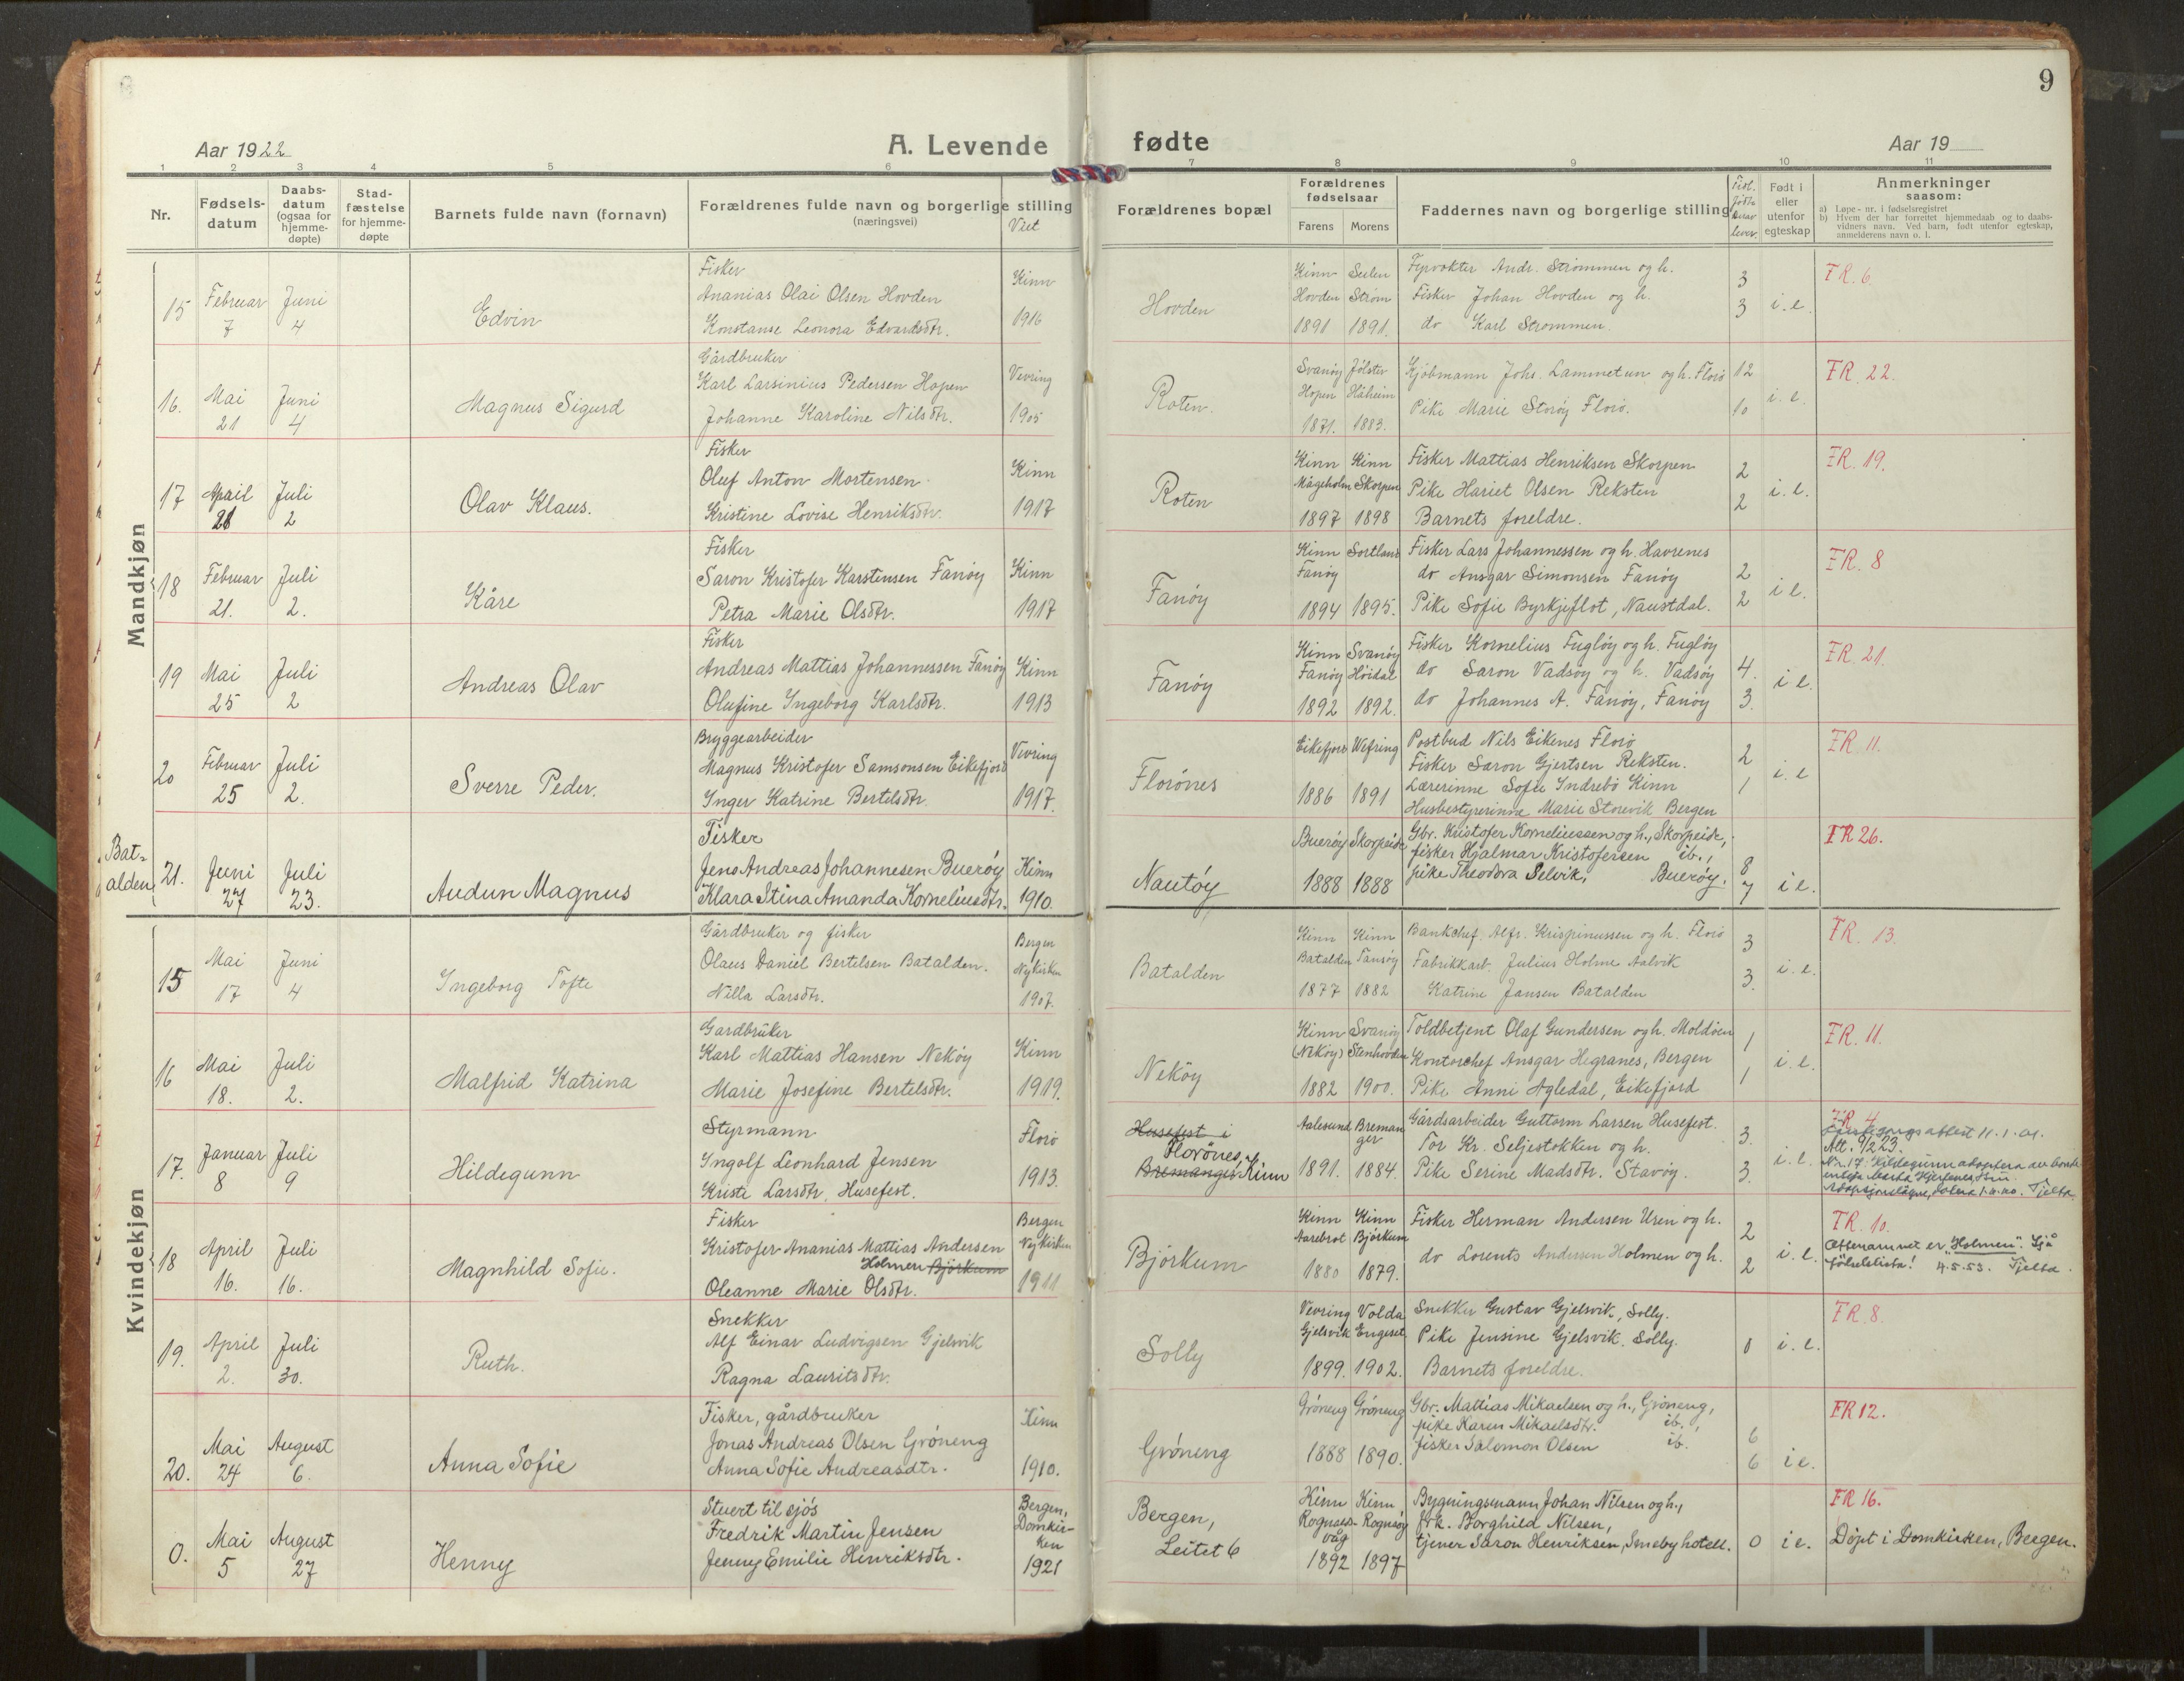 9
Aar 1922
A. Levende fødte
Aar 19
1 2 3 4 5 6 7 8 9 10 11
Nr.
Fødsels-
datum
Daabs-
datum
(ogsaa for
hjemme-
døpte)
Stad-
fæstelse
for hjemme-
døpte
Barnets fulde navn (fornavn)
Forældrenes fulde navn og borgerlige stilling
(næringsvei)
Viet
Forældrenes bopæl
Forældrenes
fødselsaar
Farens Morens
Faddernes navn og borgerlige stilling
født
herav
lever.
Født i
eller
utenfor
egteskap
Anmerkninger
saasom:
a) Løpe-nr. i fødselsregistret
b) Hvem der har forrettet hjemmedaab og to daabs-
vidners navn. Ved barn, født utenfor egteskap,
anmelderens navn o. l.
Mandkjøn
15 Februar 7 Juni 4
Edvin
Fisker
Ananias Olai Olsen Hovden
Konstanse Leonora Edvardsdtr.
Kinn
1916
Hovden
Kinn Selen
Hovden Strøm
1891 1891.
Fyrvokter Andr. Strømmen og h.
Fisker Johan Hovden og h.
do Karl Strømmen.
3
3
i. e.
FR. 6.
16. Mai 21 Juni 4
Magnus Sigurd
Gårdbruker
Karl Larsinius Pedersen Hopen
Johanne Karoline Nilsdtr.
Vevring
1905
Roten.
Svanøy Jølster
Hopen Håheim
1871. 1883.
Kjøbmann Johs. Lammetun og h. Florø
Pike Marie Storøy Florø.
12
10
i. e.
FR. 22.
17 April 21 Juli 2
Olav Klaus.
Fisker
Oluf Anton Mortensen
Kristine Lovise Henriksdtr.
Kinn
1917
Roten
Kinn Kinn
Mågeholm Skorpen
1897 1898
Fisker Mattias Henriksen Skorpen
Pike Hariet Olsen Reksten
Barnets foreldre.
2
2
i. e.
FR. 19.
18 Februar 21. Juli 2.
Kåre
Fisker
Saron Kristofer Karstensen Fanøy
Petra Marie Olsdtr.
Kinn
1917
Fanøy
Kinn Sortland
Fanøy
1894 1895.
Fisker Lars Johannessen og h. Havrenes
do Ansgar Simonsen Fanøy
Pike Sofie Byrkjeflot, Naustdal.
2
2
i e.
FR. 8
19 Mai 25 Juli 2
Andreas Olav
Fisker
Andreas Mattias Johannessen Fanøy
Olufine Ingeborg Karlsdtr.
Kinn
1913
Fanøy
Kinn Svanøy
Fanøy Høidal
1892 1892.
Fisker Kornelius Fugløy og h. Fugløy
do Saron Vadsøy og h. Vadsøy
do Johannes A. Fanøy, Fanøy
4.
3.
i e.
FR. 21.
20 Februar 25 Juli 2.
Sverre Peder.
Bryggearbeider
Magnus Kristofer Samsonsen Eikefjord
Inger Katrine Bertelsdtr.
Vevring
1917.
Florønes
Eikefjord Wefring
1886 1891
Postbud Nils Eikenes Florø
Fisker Saron Gjertsen Reksten.
Lærerinne Sofie Indrebø Kinn
Husbestyrerinne Marie Storevik Bergen
2
1
i e
FR. 11.
Bat-
alden
21. Juni 27 Juli 23.
Audun Magnus
Fisker
Jens Andreas Johannesen Buerøy
Klara Stina Amanda Korneliusdtr.
Kinn
1910.
Nautøy
Buerøy Skorpeide
1888 1888
Gbr. Kristofer Korneliussen og h., Skorpeide,
fisker Hjalmar Kristofersen ib.,
pike Theodora Selvik, Buerøy.
8
7
i e.
FR 26.
Kvindekjøn
15 Mai 17 Juni 4
Ingeborg Tofte
Gårdbruker og fisker
Olaus Daniel Bertelsen Batalden.
Nilla Larsdtr.
Bergen
Nykirken
1907.
Batalden
Kinn Kinn
Batalden Tansøy
1877 1882
Bankchef. Alfr. Krispinussen og h. Florø
Fabrikkarb. Julius Holme Aalvik
Katrine Jansen Batalden
3
3.
i. e.
FR. 13.
16 Mai 18. Juli 2.
Malfrid Katrina
Gardbruker
Karl Mattias Hansen Nekøy
Marie Josefine Bertelsdtr.
Kinn
1919.
Nekøy
Kinn Svanøy
(Nekøy) Stenhovden
1882 1900.
Toldbetjent Olaf Gundersen og h. Moldøen
Kontorchef Ansgar Hegranes, Bergen
Pike Anni Agledal, Eikefjord
1
1
i. e.
FR. 11.
17. Januar 8 Juli 9
Hildegunn
Styrmann
Ingolf Leonhard Jensen
Kriste Larsdtr. Husefest.
Florø
1913.
Husefest i
Florønes,
Bremanger Kinn
Aalesund Breman
ger
1891. 1884.
Gårdsarbeider Guttorm Larsen Husefest.
Tor Kr. Seljestokken og h.
Pike Serine Madsdtr. Stavøy.
3.
3.
i. e.
FR. 4
Att. 9/2 23.
Nr. 17: Hildegunn adoptera av
Tjelta.
18 April 16. Juli 16.
Magnhild Sofie.
Fisker
Kristofer Ananias Mattias Andersen
Holmen Bjørkum
Oleanne Marie Olsdtr.
Bergen
Nykirken
1911
Bjørkum
Kinn Kinn
Aarebrot Bjørkum
1880 1879.
Fisker Herman Andersen Uren og h.
do Lorents Andersen Holmen og h.
2
2
i. e.
FR. 10.
Ættenamnet er "Holmen". Sjå
fødselslista! 4.5.53. Tjelta.
19. April 2. Juli 30.
Ruth.
Snekker
Alf Einar Ludvigsen Gjelsvik
Ragna Lauritsdtr.
Solly
Vevring Volda
Gjelsvik Engeset
1899. 1902.
Snekker Gustav Gjelsvik, Solly.
Pike Jensine Gjelsvik. Solly.
Barnets foreldre.
0
i. e.
FR. 8.
20. Mai 24 August 6.
Anna Sofie
Fisker, gårdbruker
Jonas Andreas Olsen Grøneng
Anna Sofie Andreasdtr.
Kinn
1910.
Grøneng
Grøneng Grøneng
1888 1890.
Gbr. Mattias Mikaelsen og h., Grøneng,
pike Karen Mikaelsdtr. ib.,
fisker Salomon Olsen ib.
6
6
i e.
FR 12.
0. Mai 5 August 27
Henny
Stuert til sjøs
Fredrik Martin Jensen
Jenny Emilie Henriksdtr.
Bergen,
Domkir-
ken
1921
Bergen,
Leitet 6
Kinn Kinn
Rognaes- Rognsøy
våg
1892 1897
Bygningsmann Johan Nilsen og h.,
frk. Borghild Nilsen,
tjener Saron Henriksen, Smeby hotell.
0
i e.
FR 16.
Døpt i Domkirken, Bergen.